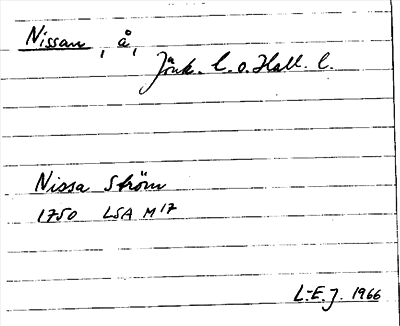 Nissan, å,
Jönk. l. o. Hall. l.
Nissa Ström
1750 LSA M 17
L-E. J. 1966